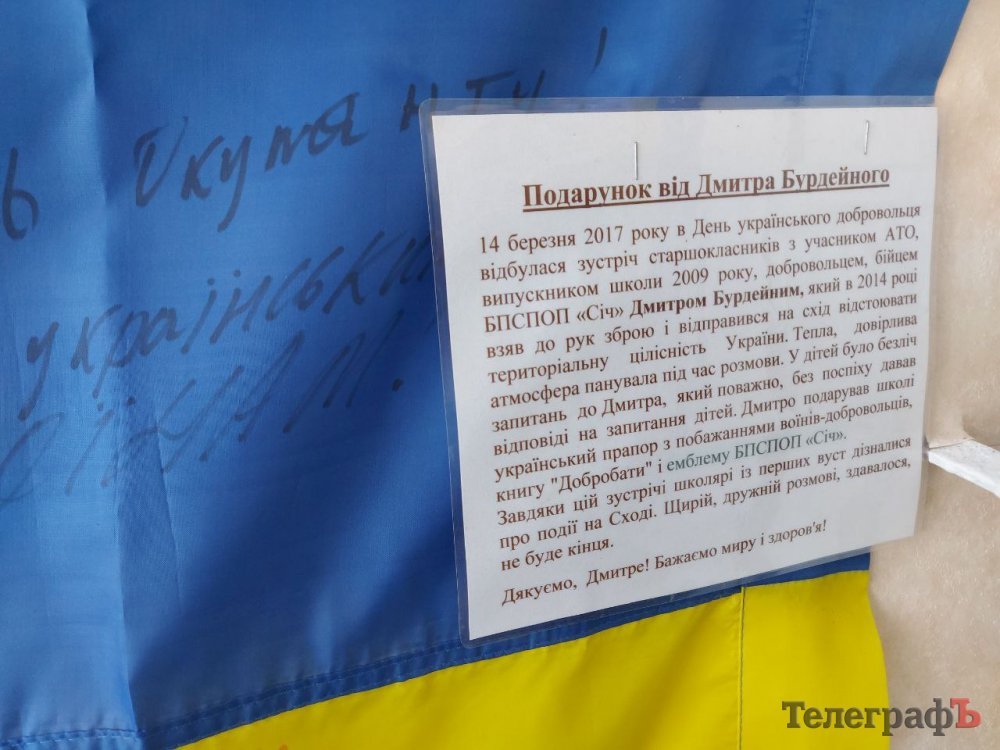 ь Окупанту!
українськи
Подарунок від Дмитра Бурдейного
14 березня 2017 року в День українського добровольця
відбулася зустріч старшокласників з учасником АТО,
випускником школи 2009 року, добровольцем, бійцем
БПСПОП «Січ» Дмитром Бурдейним, який в 2014 році
взяв до рук зброю і відправився на схід відстоювати
територіальну цілісність України. Тепла, довірлива
атмосфера панувала під час розмови. У дітей було безліч
запитань до Дмитра, який поважно, без поспіху давав
відповіді на запитання дітей. Дмитро подарував школі
український прапор з побажаннями воїнів-добровольців,
книгу "Добробати" і емблему БПСПОП «Січ».
Завдяки цій зустрічі школярі із перших вуст дізналися
про події на Сході. Щирій, дружній розмові, здавалося,
не буде кінця.
Дякуємо, Дмитре! Бажаємо миру і здоров'я!
ТелеграфЪ